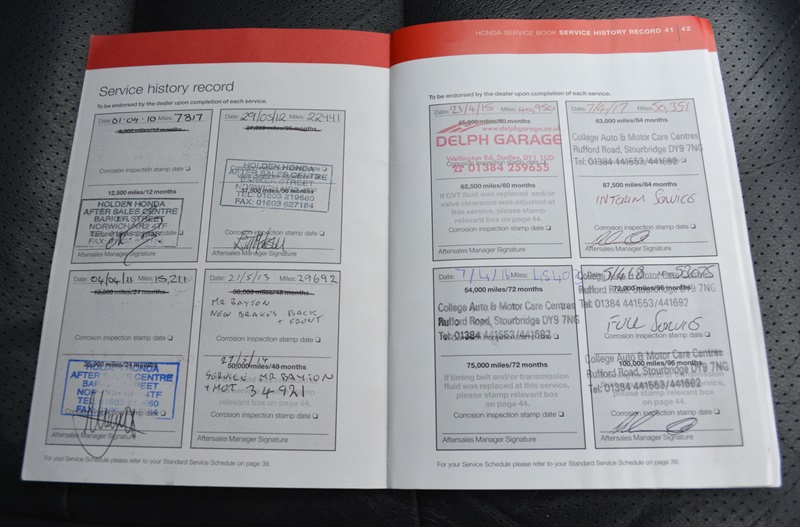 HONDA SERVICE BOOK SERVICE HISTORY RECORD 41 42
Service history record
To be endorsed by the dealer upon completion of each service.
Date: 01·04·10 Miles: 7817
Corrosion inspection stamp date
12,500 miles/12 months
HOLDEN HONDA
AFTER SALES CENTRE
BARKER STREET
NORWICH NR2 4TF
Aftersales Manager Signature
Date: 29/03/12 Miles: 22441
HOLDEN HONDA
AFTER SALES CENTRE
BARKER STREET
TEL: 01603 219560
FAX: 01603 627184
Corrosion inspection stamp date
Aftersales Manager Signature
Date: 04/04/11 Miles: 15,211
Corrosion inspection stamp date
HOLDEN HONDA
AFTER SALES CENTRE
Aftersales Manager Signature
Date: 21/5/13 Miles: 29692
MR BAYTON
NEW BRAKES BACK
+ FRONT
Corrosion inspection stamp date
50,000 miles/48 months
SERVICE MR BAYTON
+ MOT 34921
Corrosion inspection stamp date
Aftersales Manager Signature
For your Service Schedule please refer to your Standard Service Schedule on page 39.
To be endorsed by the dealer upon completion of each service.
Date: 21/4/15 Miles: 40,950
45,000 miles/60 months
www.delphgarage.co.uk
DELPH GARAGE
Wellington Rd, Dudley, DY1 1UD
☎ 01384 259655
62,500 miles/60 months
If CVT fluid was replaced and/or
valve clearance was adjusted at
this service, please stamp
relevant box on page 44.
Corrosion inspection stamp date
Aftersales Manager Signature
Miles: 50,351
63,000 miles/84 months
College Auto & Motor Care Centres
Rufford Road, Stourbridge DY9 7NG
Tel: 01384 441553/441692
87,500 miles/84 months
INTERIM SERVICE
Corrosion inspection stamp date
Aftersales Manager Signature
Date: 7/4/16 Miles:
54,000 miles/72 months
College Auto & Motor Care Centres
Rufford Road, Stourbridge DY9 7NG
Tel: 01384 441553/441692
75,000 miles/72 months
If timing belt and/or transmission
fluid was replaced at this service,
please stamp relevant box
on page 44.
Corrosion inspection stamp date
Aftersales Manager Signature
College Auto & Motor Care Centres
72,000 miles/96 months
Rufford Road, Stourbridge DY9 7NG
Tel: 01384 441553/441692
FULL SERVICE
100,000 miles/96 months
College Auto & Motor Care Centres
Rufford Road, Stourbridge DY9 7NG
Tel: 01384 441553/441692
Corrosion inspection stamp date
Aftersales Manager Signature
For your Service Schedule please refer to your Standard Service Schedule on page 39.